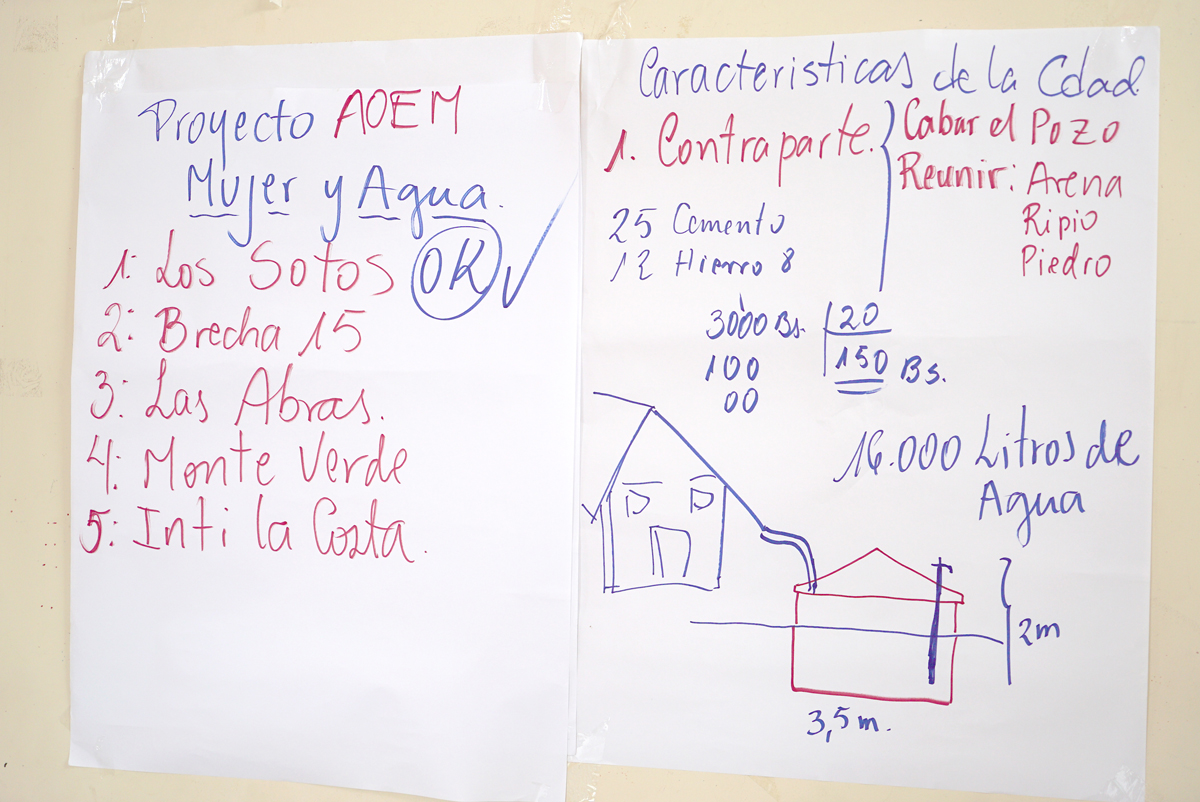 Proyecto AOEM
Mujer y Agua.
1: Los Sotos OK
2: Brecha 15
3: Las Abras.
4: Monte Verde
5: Inti la Costa.
Caracteristicas de la Cdad
1. Contraparte.
Cabar el Pozo
Reunir: Arena
Ripio
Piedro
25 Cemento
12 Hierro 8
3000 Bs. 20
100 150 Bs.
00
16.000 Litros de
Agua
2m
3,5 m.